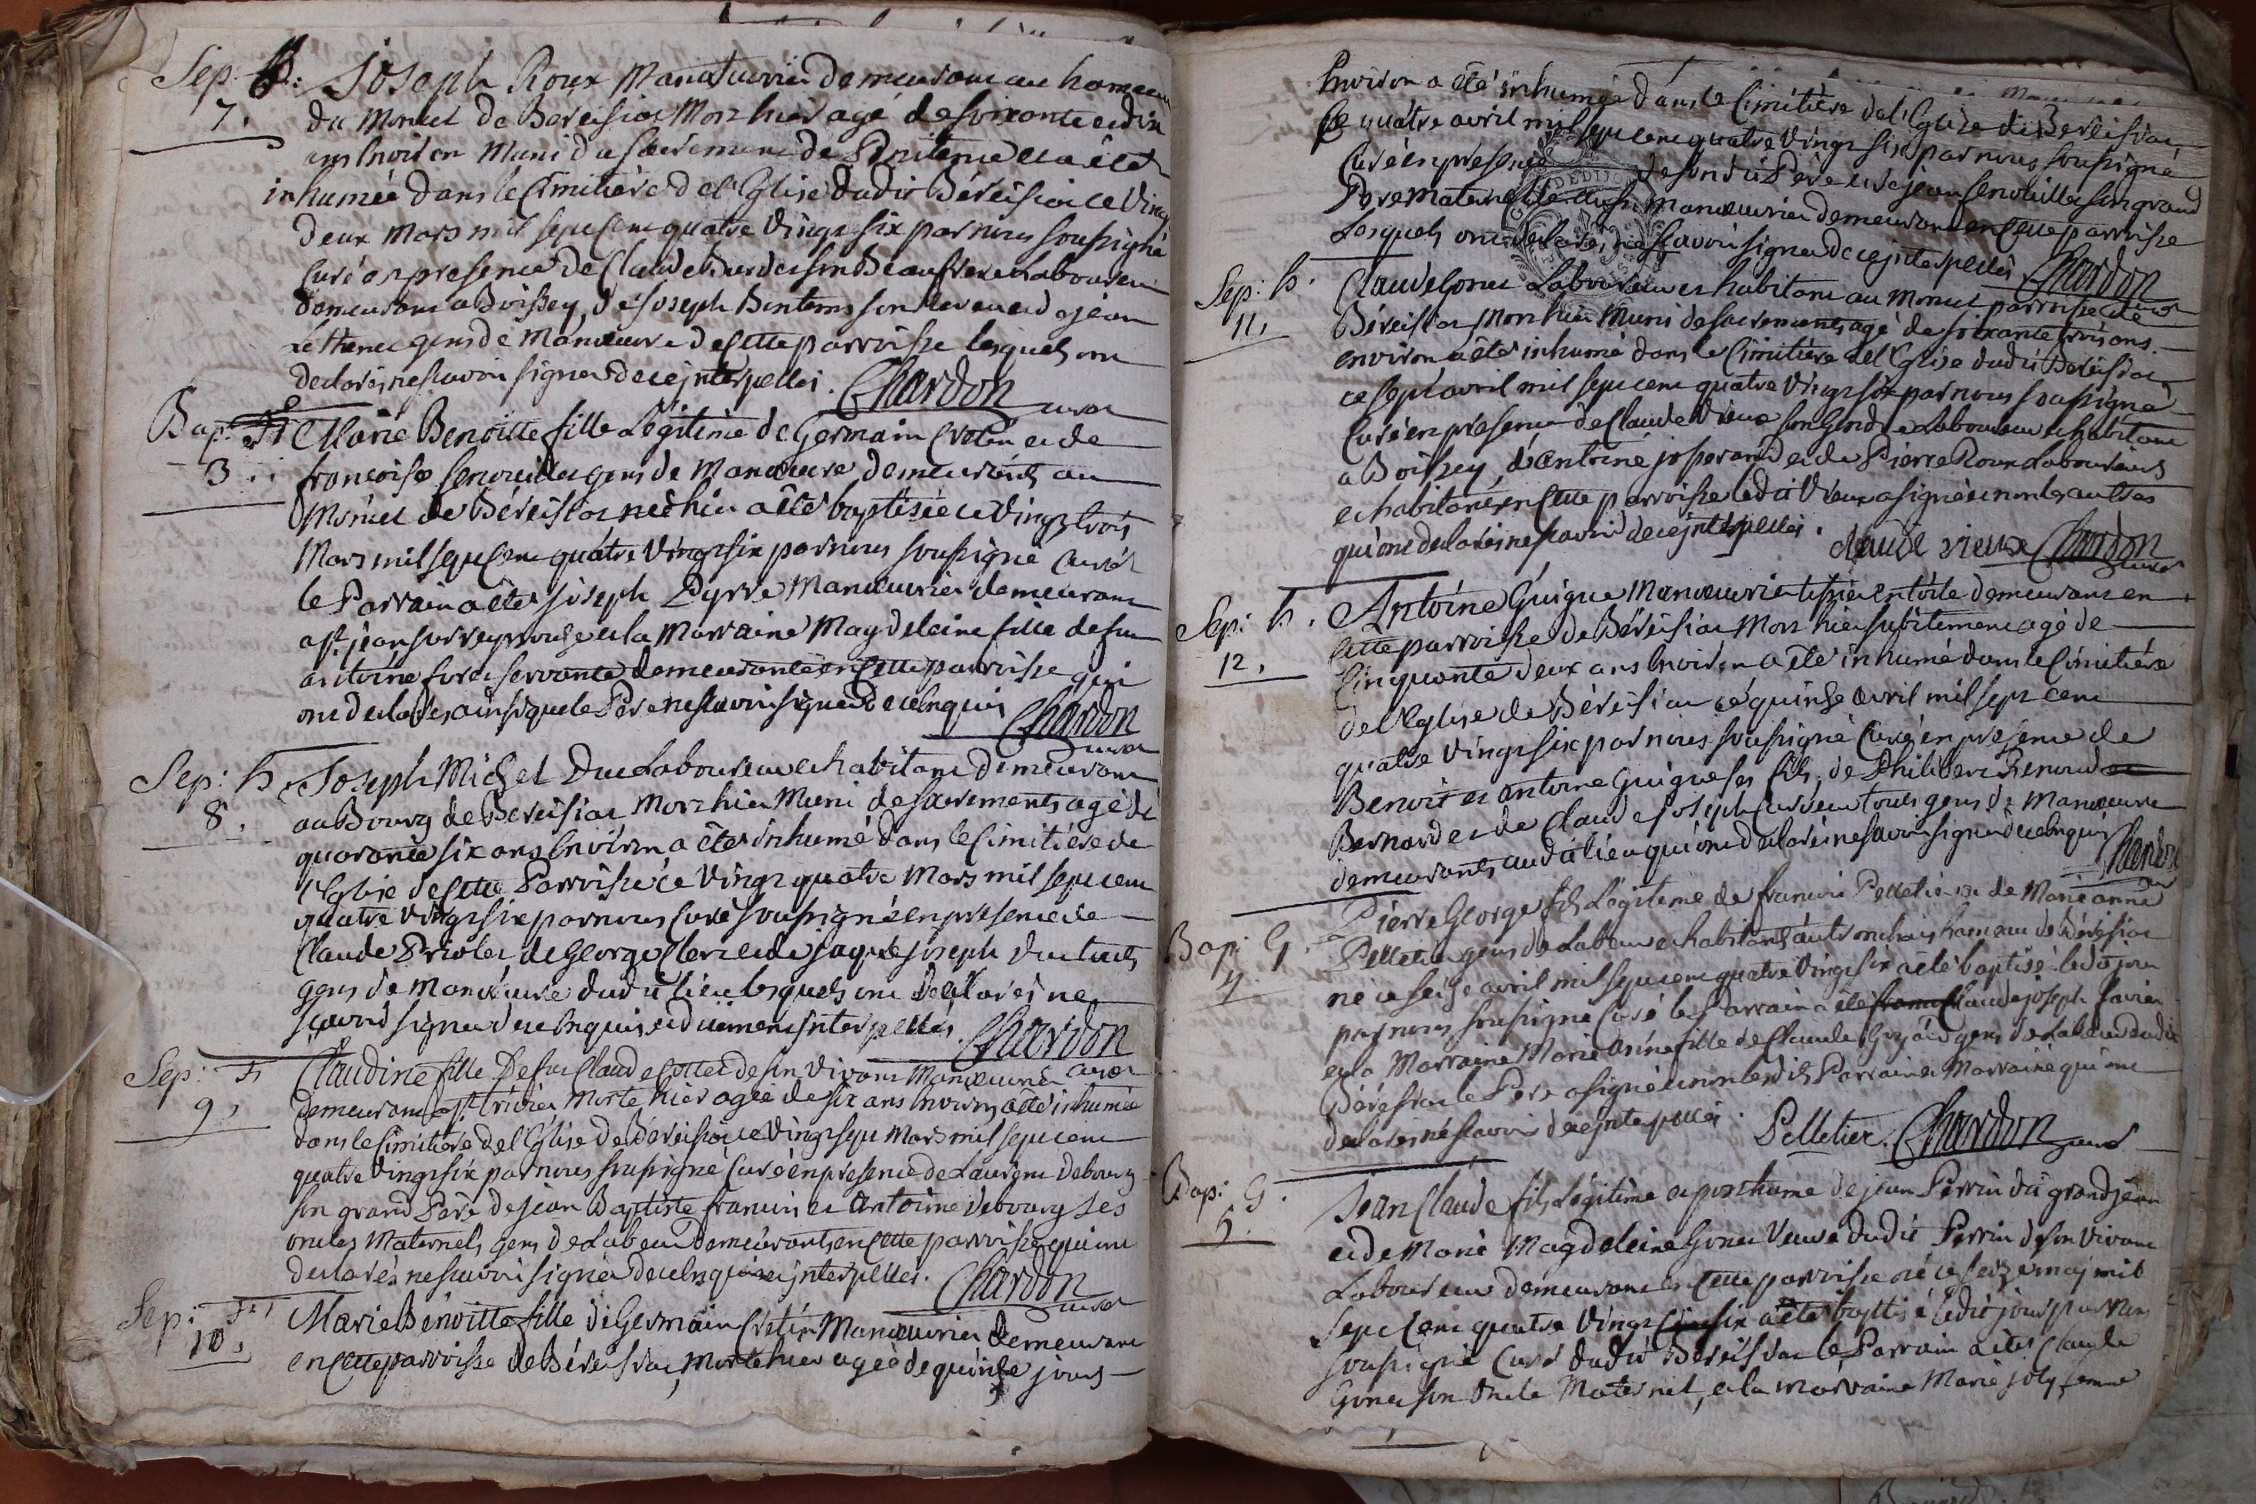 Sep: h.
7.
Joseph Roux Manœuvrier demeurant au hameau
du Moncet de Béreisiat Mort hier agé de soixante et dix
ans Environ Muni du sacrement de Pénitence et a été
inhumée dans le Cimitière de l'Eglise dudit Béreisiat ce vingt
deux Mars mil sept Cent quatre vingt six par nous soussigné
Curé en presence de Claude son Beaufrere Laboureur
demeurant a Boissey, de joseph son neveu et de jean
gens de Manœuvre de cette parroisse lesquels ont
declarés ne scavoir signer de ce interpellés. Chardon
curé
Bap: F
3.
Marie Benoitte fille Légitime de Germain Cretin et de
françoise gens de Manœuvre demeurants au
Moncet de Béreisiat née hier a été baptisée ce vingt trois
Mars mil sept Cent quatre vingt six par nous soussigné Curé
le Parrain a été joseph Pyrre Manœuvrier demeurant
a st. jean sur reyssouse et la Marraine Magdeleine fille de feu
antoine servante demeurante en cette parroisse qui
ont declarés ainsi que le Père ne scavoir signer de ce Enquis Chardon
curé
Sep: h.
8.
Joseph Michel Duc Laboureur et habitant demeurant
au Bourg de Béreisiat Mort hier Muni de sacrements agé de
quarante six ans Environ a été inhumé dans le Cimitière de
l'Eglise de cette Parroisse ce vingt quatre Mars mil sept cent
quatre vingt six par nous Curé soussigné en presence de
Claude de George Clerc et de jaque joseph Duc touts
gens de manœuvre dudit lieu lesquels ont declarés ne
scavoir signer de ce Enquis et duement interpellés. Chardon
curé
Sep: F
9.
Claudine fille De feu Claude de son vivant Manœuvrier
demeurant a st. trivier Morte hier agée de six ans Environ a été inhumée
dans le Cimitière de l'Eglise de Béreisiat ce vingt sept Mars mil sept cent
quatre vingt six par nous soussigné Curé en presence de Laurent Debourg
son grand Père de jean Baptiste francois et Antoine Debourg ses
oncles Maternels gens de Labeur demeurants en cette parroisse qui ont
declarés ne scavoir signer de ce Enquis et interpellés. Chardon
curé
Sep: F
10.
Marie Benoitte fille de Germain Cretin Manœuvrier demeurant
en cette parroisse de Béreisiat, Morte hier agée de quinze jours
Environ a été inhumée dans le Cimitière de l'Eglise de Béreisiat
ce quatre avril mil sept cent quatre vingt six par nous soussigné
Curé en presence de sondit Père et de jean son grand
Pere Maternelle aussi manœuvrier demeurant en cette parroisse
Lesquels ont declarés ne scavoir signer de ce interpellés Chardon
Sep: h.
11.
Claude Gonet Laboureur et habitant au Moncet parroisse de
Béreisiat Mort hier Muni de sacrements agé de soixante trois ans
environ a été inhumé dans le Cimitière de l'Eglise dudit Béreisiat
ce sept avril mil sept cent quatre vingt six par nous soussigné
Curé en présence de Claude Vieux son Gendre Laboureur et habitant
a Boissey, d'antoine josserand et de Pierre Roux Laboureurs
et habitants en cette parroisse ledit Vieux a signé et non les autres
qui ont declarés ne scavoir de ce interpellés. claude vieux Chardon
curé
Sep: h.
12.
Antoine Guigue Manœuvrier tissier en toile demeurant en
cette parroisse de Béreisiat Mort hier subitement agé de
Cinquante deux ans Environ a été inhumé dans le Cimitière
de l'Eglise de Béreisiat ce quinze avril mil sept cent
quatre vingt six par nous soussigné Curé en présence de
Benoit et antoine Guigue ses fils, de Philibert Renoud
Bernard et de Claude joseph touts gens de Manœuvre
demeurants audit lieu qui ont declarés ne scavoir signer de ce Enquis Chardon
Bap: G.
4.
Pierre George fils Légitime de francois Pelletier et de Marie anne
Pelletier gens de Labeur et habitants hameau de Béréisiat
né ce seize avril mil sept cent quatre vingt six a été baptisé ledit jour
par nous soussigné Curé le Parrain a été Claude joseph
et la Marraine Marie fille de Claude gens de Labeur dudit
Béreisiat le Père a signé et non lesdits Parrain et Marraine qui ont
declarés ne scavoir de ce interpellés. Pelletier. Chardon curé
Bap: G.
5.
Jean Claude fils Légitime et posthume de jean Perrin dit grandjean
et de Marie Magdeleine Gonet Veuve dudit Perrin de son Vivant
Laboureur demeurant en cette parroisse né ce seize maj mil
Sept Cent quatre vingt six a été baptisé ledit jour par nous
soussigné Curé dudit Béreisiat le Parrain a été Claude
Gonet son Oncle Maternel, et la marraine Marie joly femme